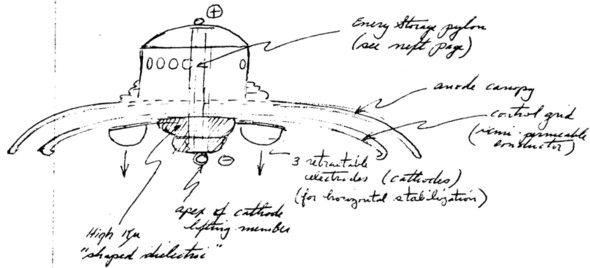 +
Enery Storage pylon
(see next page)
anode canopy
control grid
(semi-permeable
conductor)
3 retractable
electrodes (cathodes)
(for horizontal stabilization)
−
apex of cathode
lifting member
High Kμ
"shaped dielectric"